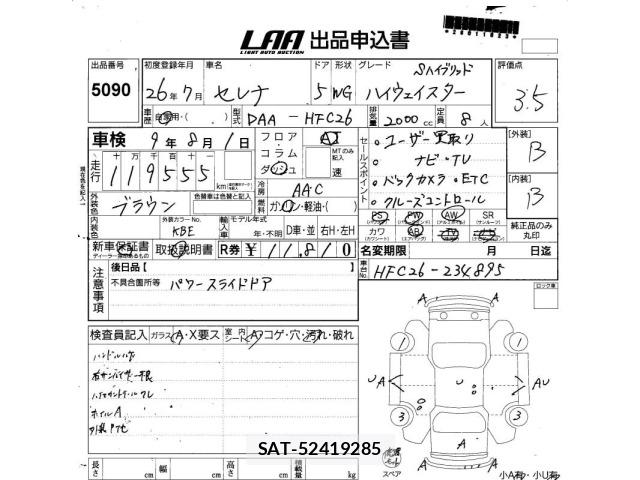 LAA 出品申込書
LIGHT AUTO AUCTION
出品番号 初度登録年月 車名 ドア 形状 グレード 評価点
Sハイブリッド
5090 26年7月 セレナ 5 WG ハイウェイスター 3.5
車歴 自家用・( ) 型式 DAA-HFC26 排気量 2000cc 定員 8人
車検 9年8月1日 フロア・コラム ダッシュ AT
MTのみ記入 速
セールスポイント
・ユーザー買取り
・ナビ・TV
・バックカメラ・ETC
・クルーズコントロール
[外装] B
[内装] B
走行 十万 万 千 百 十
119555 km
冷房 AAC
外装色 ブラウン 色替車は色替と記入 燃料 ガソリン・軽油・( )
内装色 外装カラーNo. KBE 輸入車 モデル年式 年・不明 D車・並 右H・左H
PS PW AW SR
カワ AB TV ナビ
純正品のみ丸印
新車保証書 取扱説明書 R券 ¥11,810
名変期限 月 日迄
車台No. HFC26-234895
注意事項
後日品[ ]
不具合箇所等 パワースライドドア
ロック車
検査員記入 ガラス(A・X要ス 室内シート(A)コゲ・穴・汚れ・破れ
ホイルA
A A
3 3
UA A A AU
3 3
A
A A
スペア
SAT-52419285
長さ cm 幅 cm 高さ cm 積載量 kg
小A有・小U有